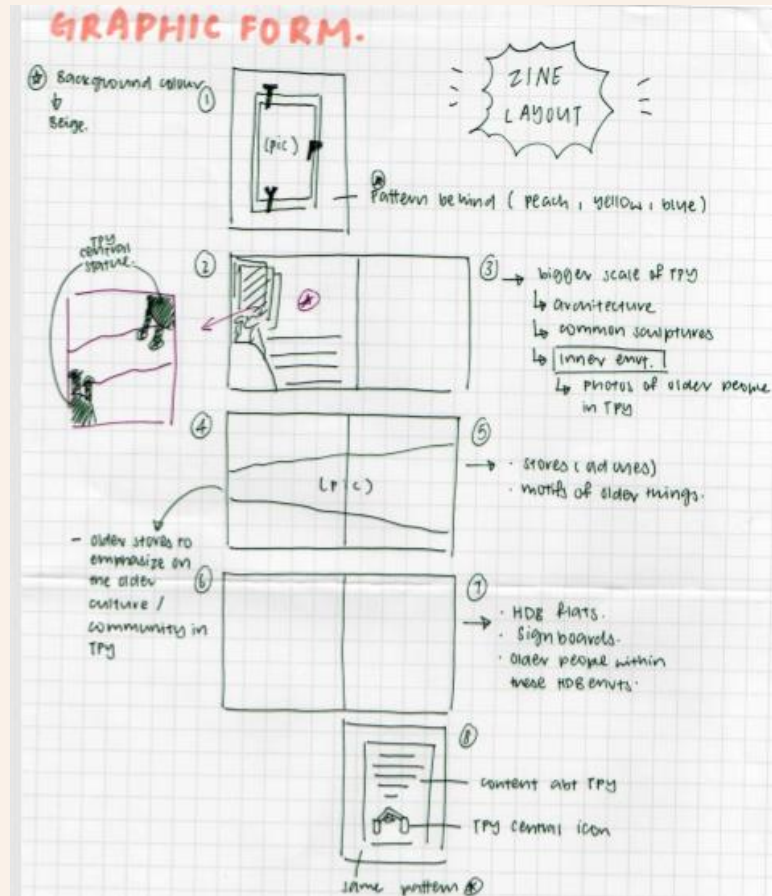 GRAPHIC FORM.
Background colour
Beige.
ZINE
LAYOUT
1
(pic)
T
P
Y
Pattern behind (peach, yellow, blue)
TPY
central
statue.
2
3
bigger scale of TPY
architecture
common sculptures
inner envt.
photos of older people
in TPY
4
5
(pic)
· motifs of older things.
- older stores to
emphasize on
the older
culture /
community in
TPY
6
7
· HDB flats.
· Sign boards.
· Older people within
these HDB envts.
8
content abt TPY
TPY central icon
same pattern